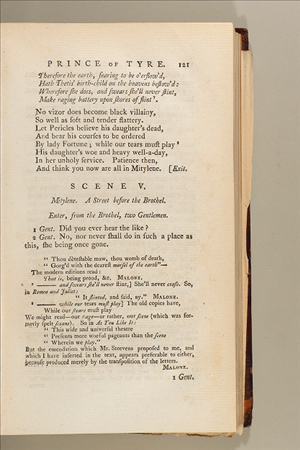 PRINCE OF TYRE. 121
Therefore the earth, fearing to be o'erflow'd,
Hath Thetis' birth-child on the heavens bestow'd:
Wherefore she does, and swears she'll never stint,
Make raging battery upon shores of flint⁸.
No vizor does become black villainy,
So well as soft and tender flattery.
Let Pericles believe his daughter's dead,
And bear his courses to be ordered
By lady Fortune; while our tears must play⁹
His daughter's woe and heavy well-a-day,
In her unholy service. Patience then,
And think you now are all in Mitylene. [Exit.
SCENE V.
Mitylene. A Street before the Brothel.
Enter, from the Brothel, two Gentlemen.
1 Gent. Did you ever hear the like?
2 Gent. No, nor never shall do in such a place as
this, she being once gone.
" Thou détestable maw, thou womb of death,
" Gorg'd with the dearest morsel of the earth"—
The modern editions read:
That is, being proud, &c. MALONE.
⁸ —— and swears she'll never stint,] She'll never cease. So,
in Romeo and Juliet:
" It stinted, and said, ay." MALONE.
⁹ —— while our tears must play] The old copies have,
While our stears must play
We might read—our stage—or rather, our scene (which was for-
merly spelt sceane). So in As You Like It:
" This wide and universal theatre
" Presents more woeful pageants than the scene
" Wherein we play."
But the emendation which Mr. Steevens proposed to me, and
which I have inserted in the text, appears preferable to either,
because produced merely by the transposition of the letters.
MALONE.
1 Gent.